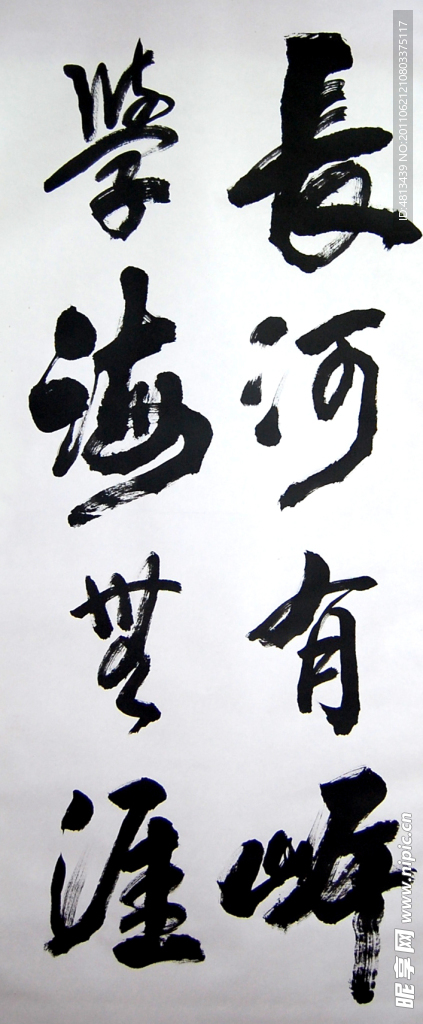 長河有岸
學海無涯
ID:4813439 NO:20110621210803375117
昵享网 www.nipic.cn